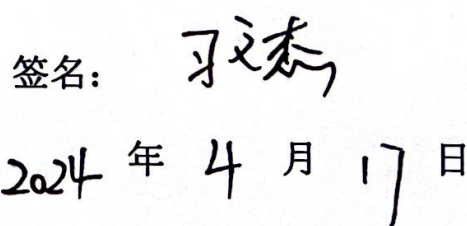 签名：习文杰
2024 年 4 月 17 日